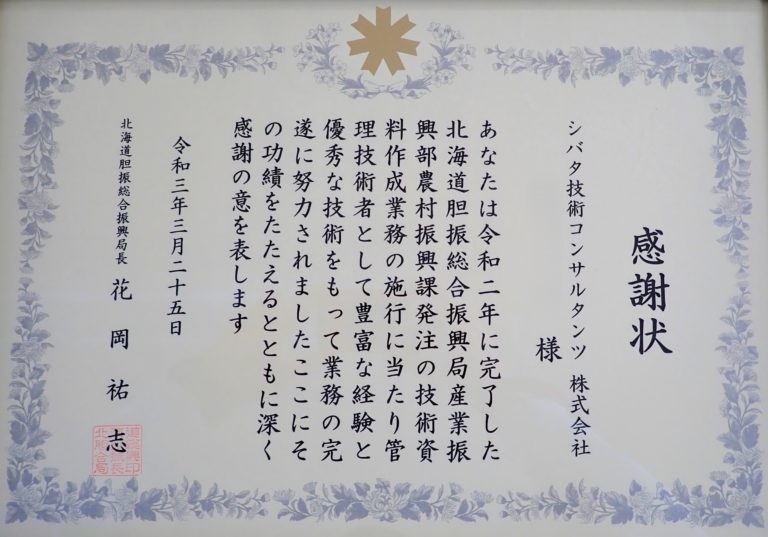 感謝状
シバタ技術コンサルタンツ 株式会社
様
あなたは令和二年に完了した
北海道胆振総合振興局産業振
興部農村振興課発注の技術資
料作成業務の施行に当たり管
理技術者として豊富な経験と
優秀な技術をもって業務の完
遂に努力されましたここにそ
の功績をたたえるとともに深く
感謝の意を表します
令和三年三月二十五日
北海道胆振総合振興局長 花岡祐志